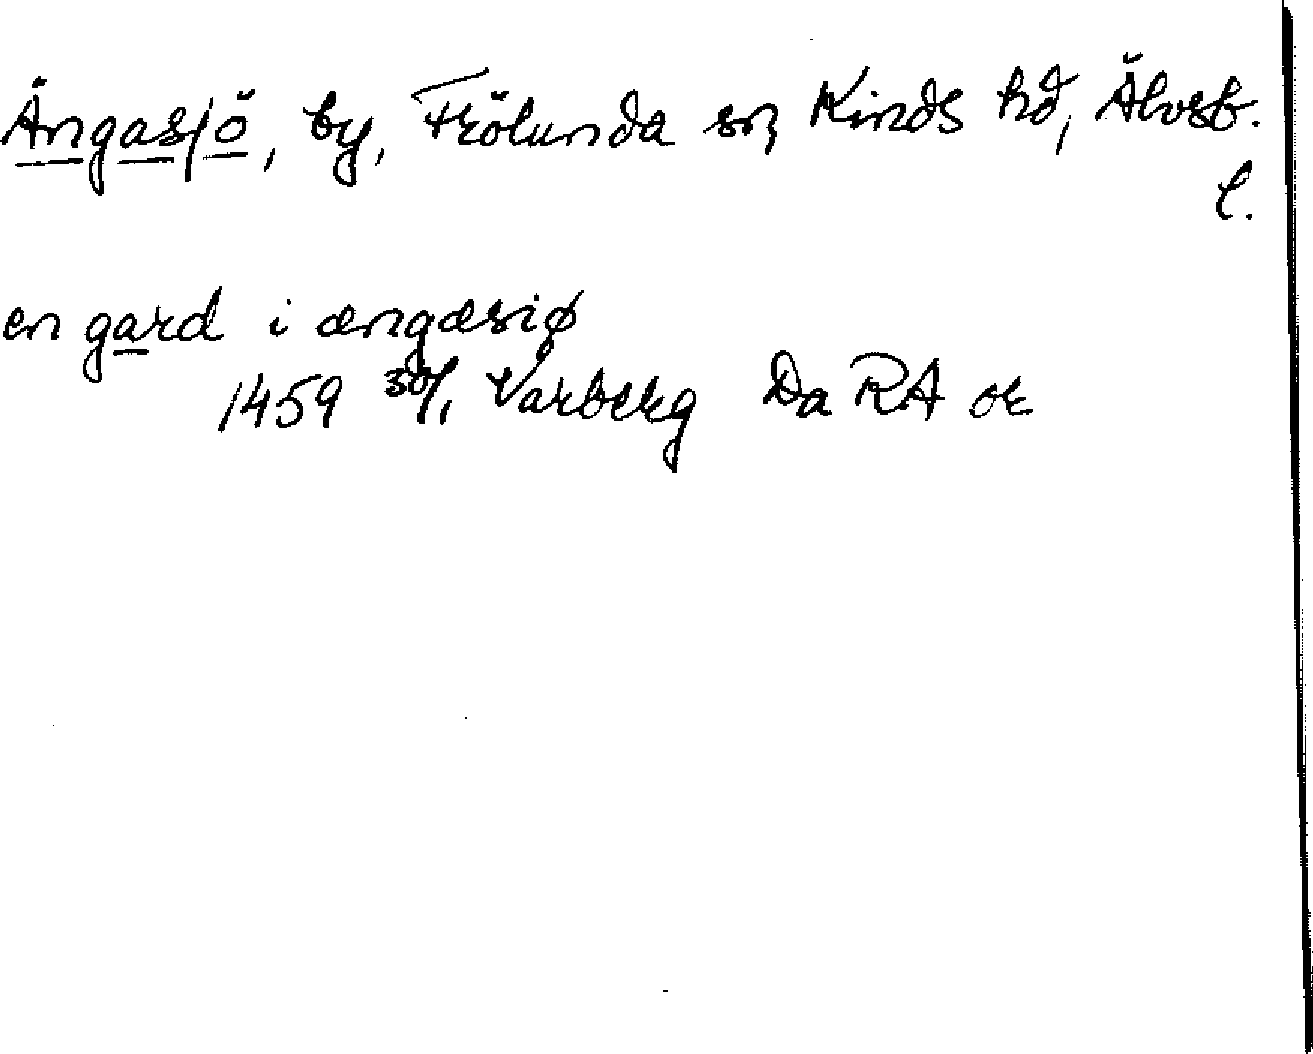 Ängasjö, by, Frölunda sn, Kinds hd, Älvsb.
l.
en gard i ængæsiø
1459 30/1 Varberg Da RA or